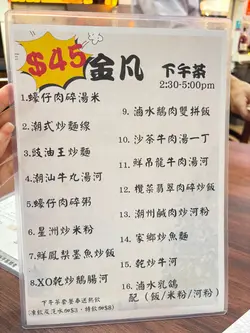 $45
金凡 下午茶
2:30-5:00pm
1.蠔仔肉碎湯米
2.潮式炒麵線
3.豉油王炒麵
4.潮汕牛丸湯河
5.蠔仔肉碎粥
6.星洲炒米粉
7.鮮鳳梨墨魚炒飯
8.XO乾炒鵝腸河
9.滷水鵝肉雙拼飯
10.沙茶牛肉湯一丁
11.鮮吊龍牛肉湯河
12.欖菜翡翠肉碎炒飯
13.潮州鹹肉炒河粉
14.家鄉炒魚麵
15.乾炒牛河
16.滷水乳鴿
配(飯/米粉/河粉)
下午茶套餐奉送熱飲
(凍飲及汽水加$3,特飲加$8)